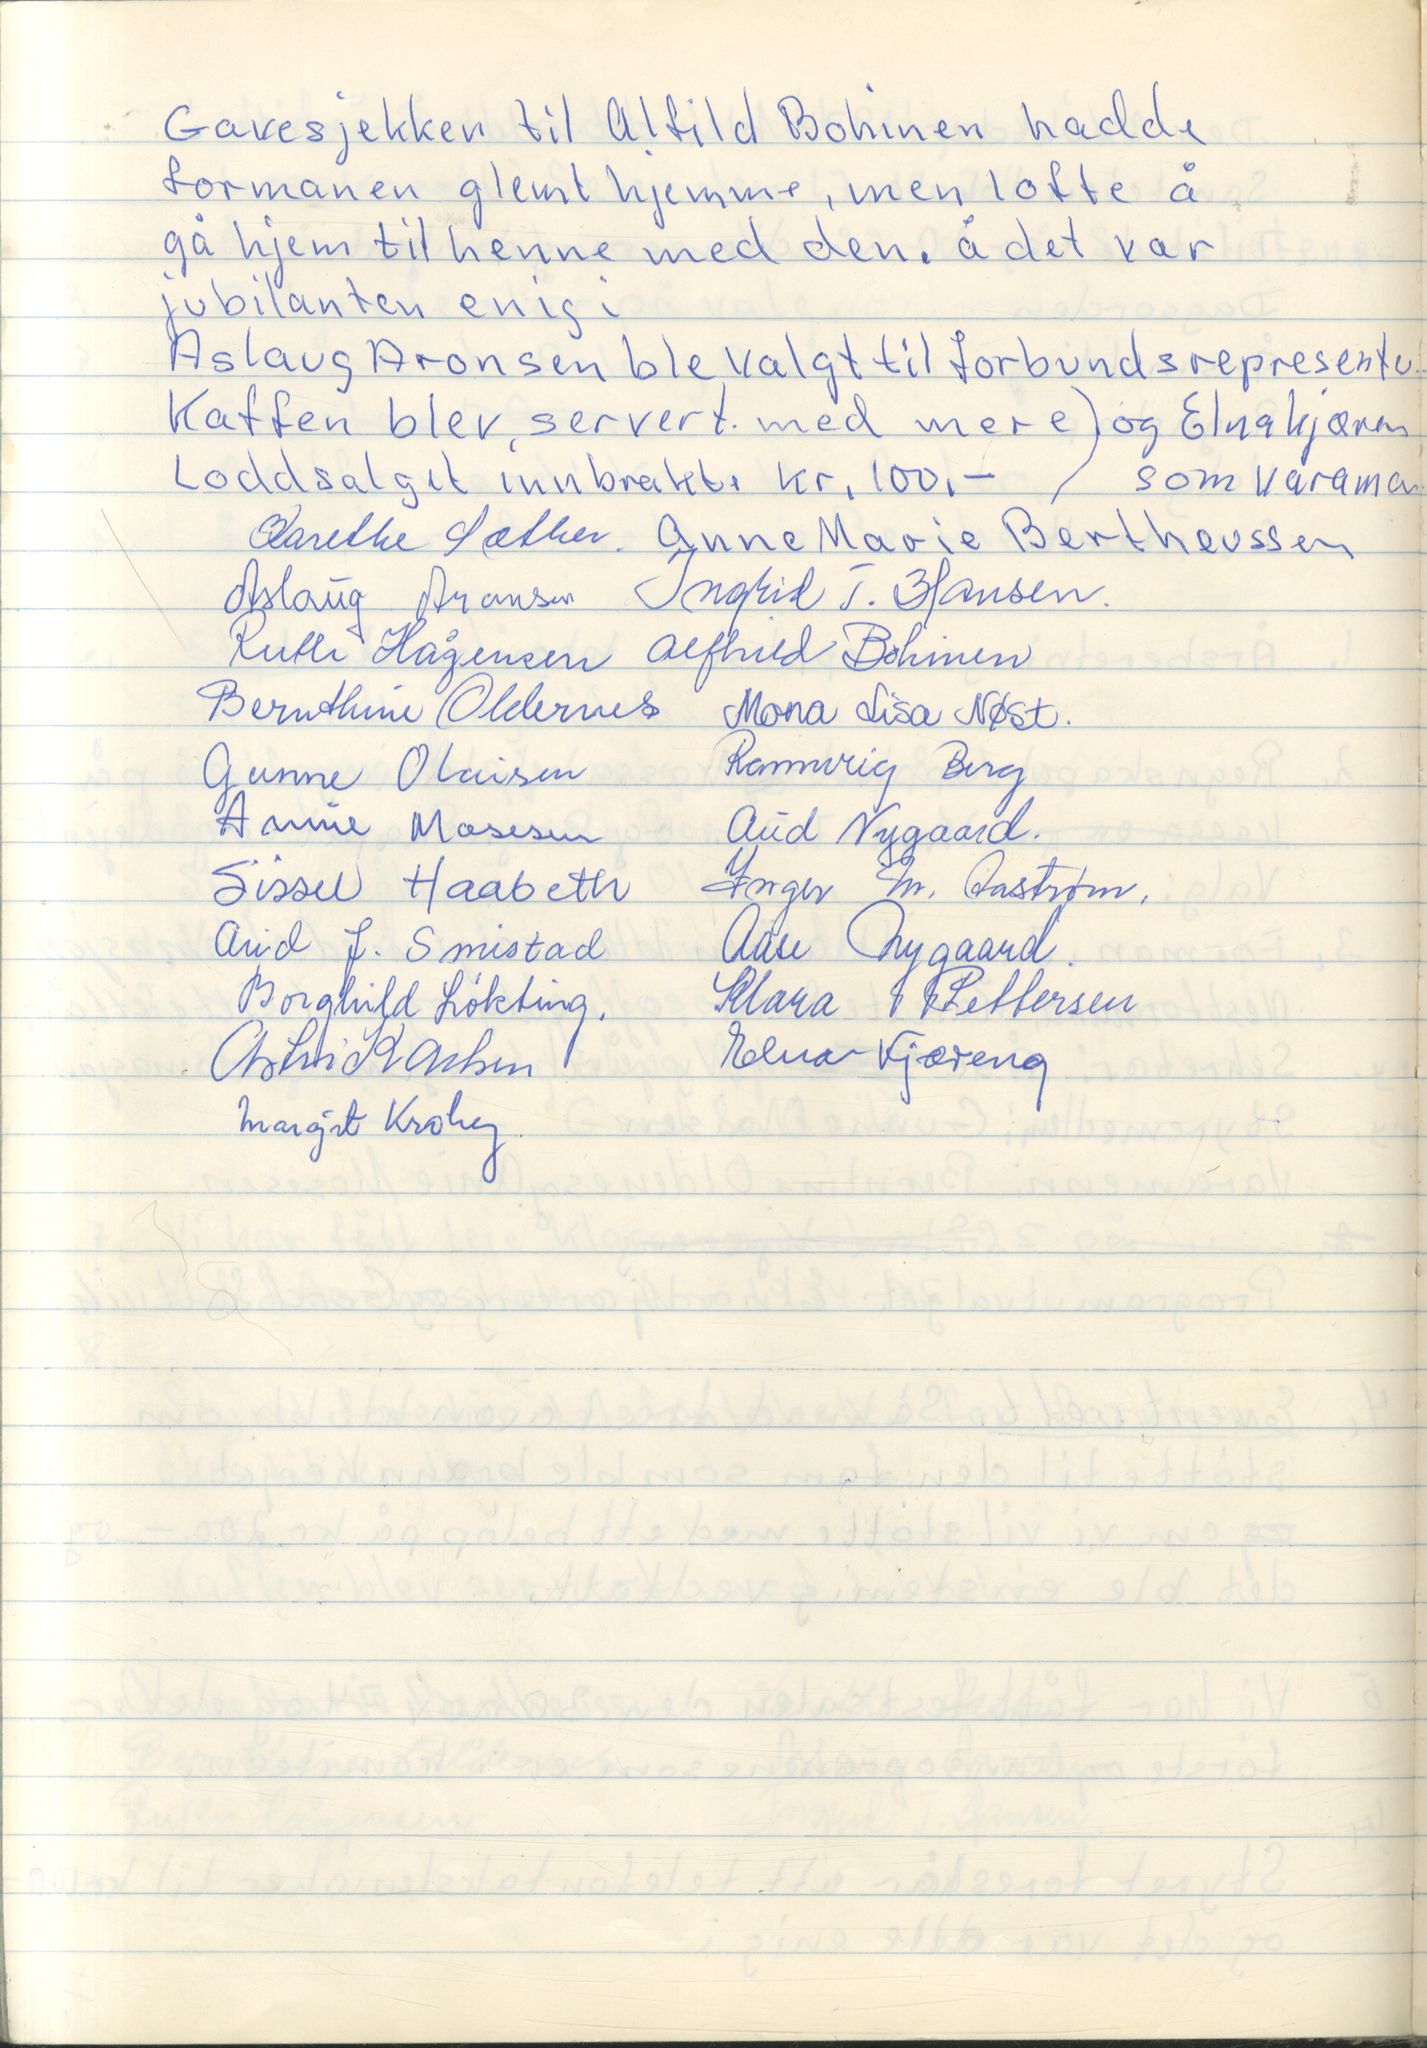 Gavesjekken til Alfild Bohinen hadde
formanen glemt hjemme, men lofte å
gå hjem til henne med den. å det var
jubilanten enig i
Aslaug Aronsen ble valgt til forbundsrepresentu
Kaffen blev servert. med mere) og Elna kjæren
Loddsalget innbrakte kr. 100,- / som varaman
Sæther. Anne Marie Bertheussen
Aslaug Aronsen Ingrid T. Hansen.
Ruth Hågensen Alfhild Bohinen
Bernthine Oldernes Mona Lisa Nøst.
Gunne Olaisen Rannveig Berg
Annie Mosesen Aud Nygaard.
Sissel Haabeth Inger M. Aastrøm.
Arid J. Smistad Aase Nygaard.
Borghild Løkting. Klara Pettersen
Astrid Elna Kjæreng
Margit Krohg